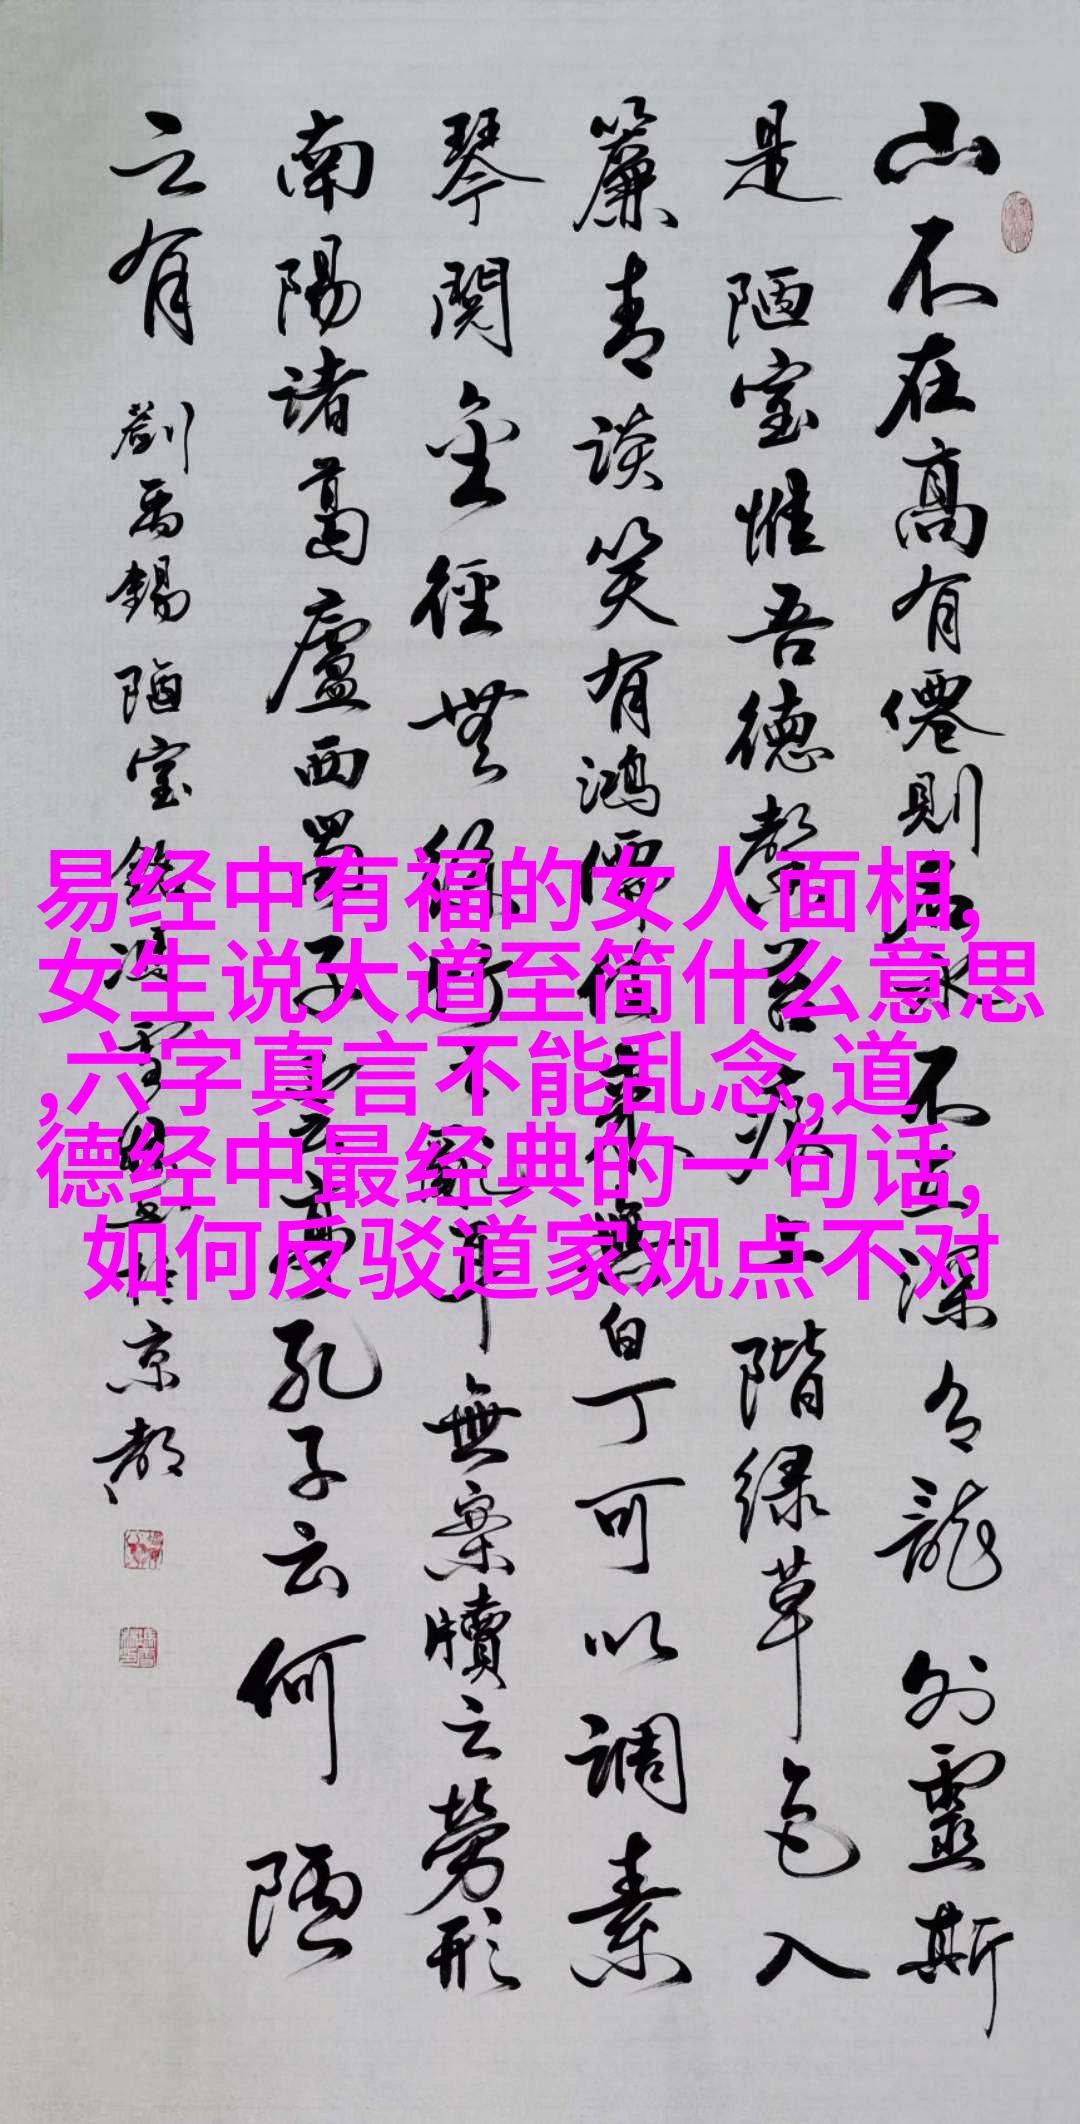 山不在高有僊則名水不在深有龍則靈斯
是陋室惟吾德馨苔痕上階绿草色入
簾青談笑有鴻儒往來無白丁可以調素
琴閱金徑無絲竹之亂耳無案牘之勞形
南陽諸葛廬西蜀子雲亭孔子云何陋
之有 劉禹錫陋室銘 京都
易经中有福的女人面相,
女生说大道至简什么意思
,六字真言不能乱念,道
德经中最经典的一句话,
如何反驳道家观点不对